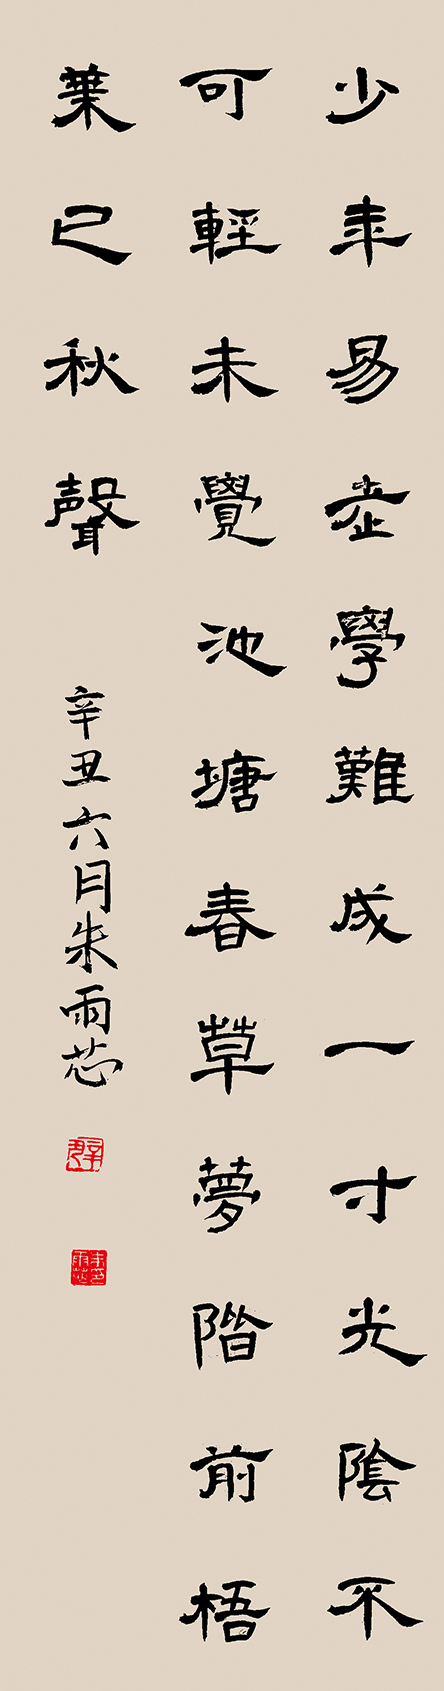 少年易老學難成一寸光陰不
可輕未覺池塘春草夢階前梧
葉已秋聲
辛丑六月朱雨芯